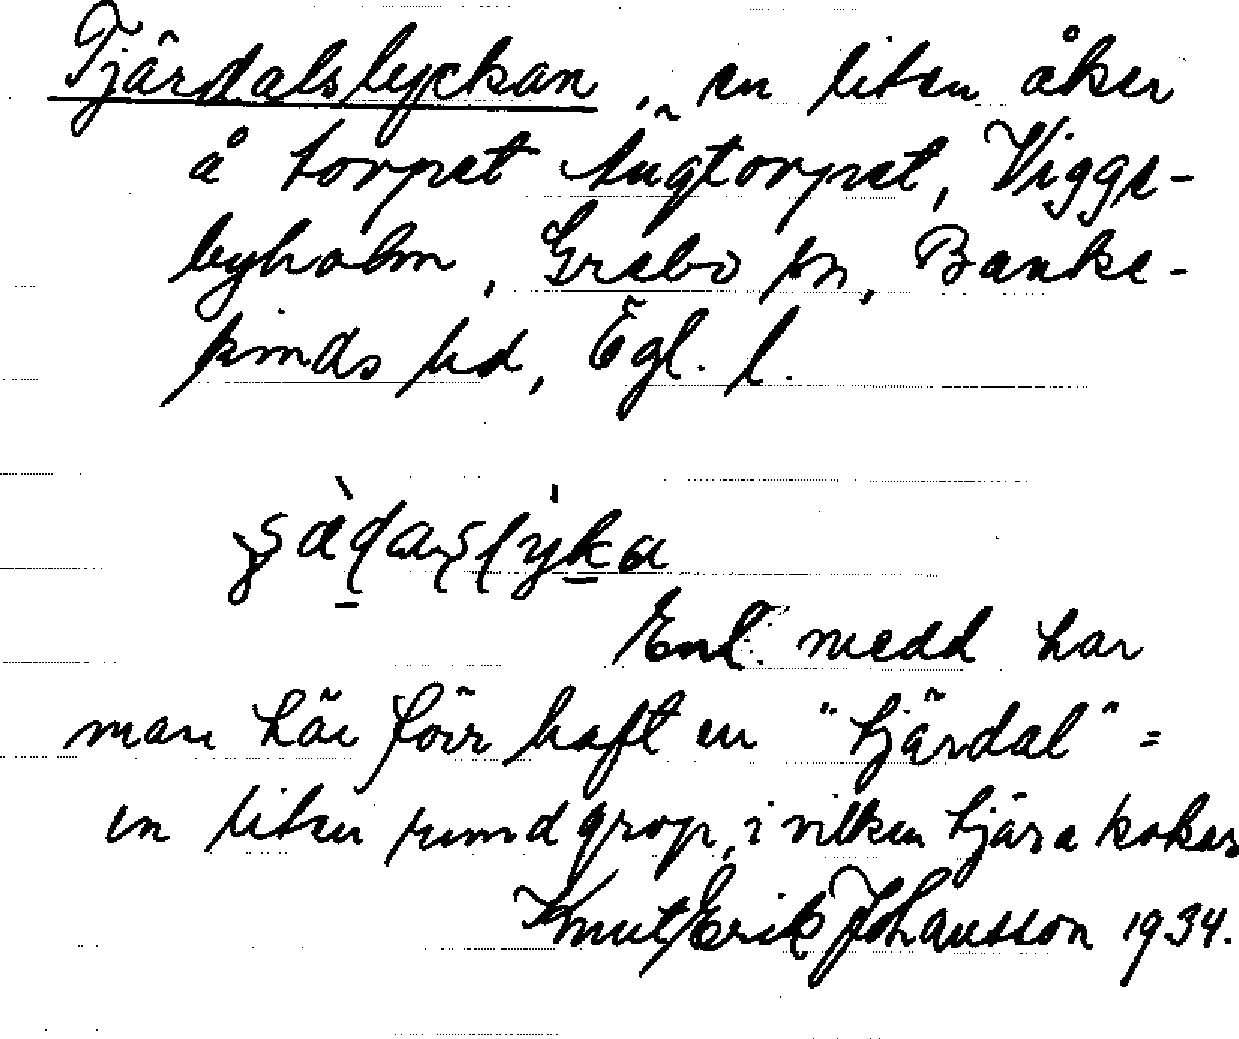 Tjärdalslyckan, en liten åker
å torpet Äugtorpet, Viggs-
byholm, Grebo sn, Banke-
kinds hd, Ögl. l.
Enl. medd har
man här förr haft en "tjärdal" =
en liten rund grop, i vilken tjära kokas
Knut Erik Johansson 1934.